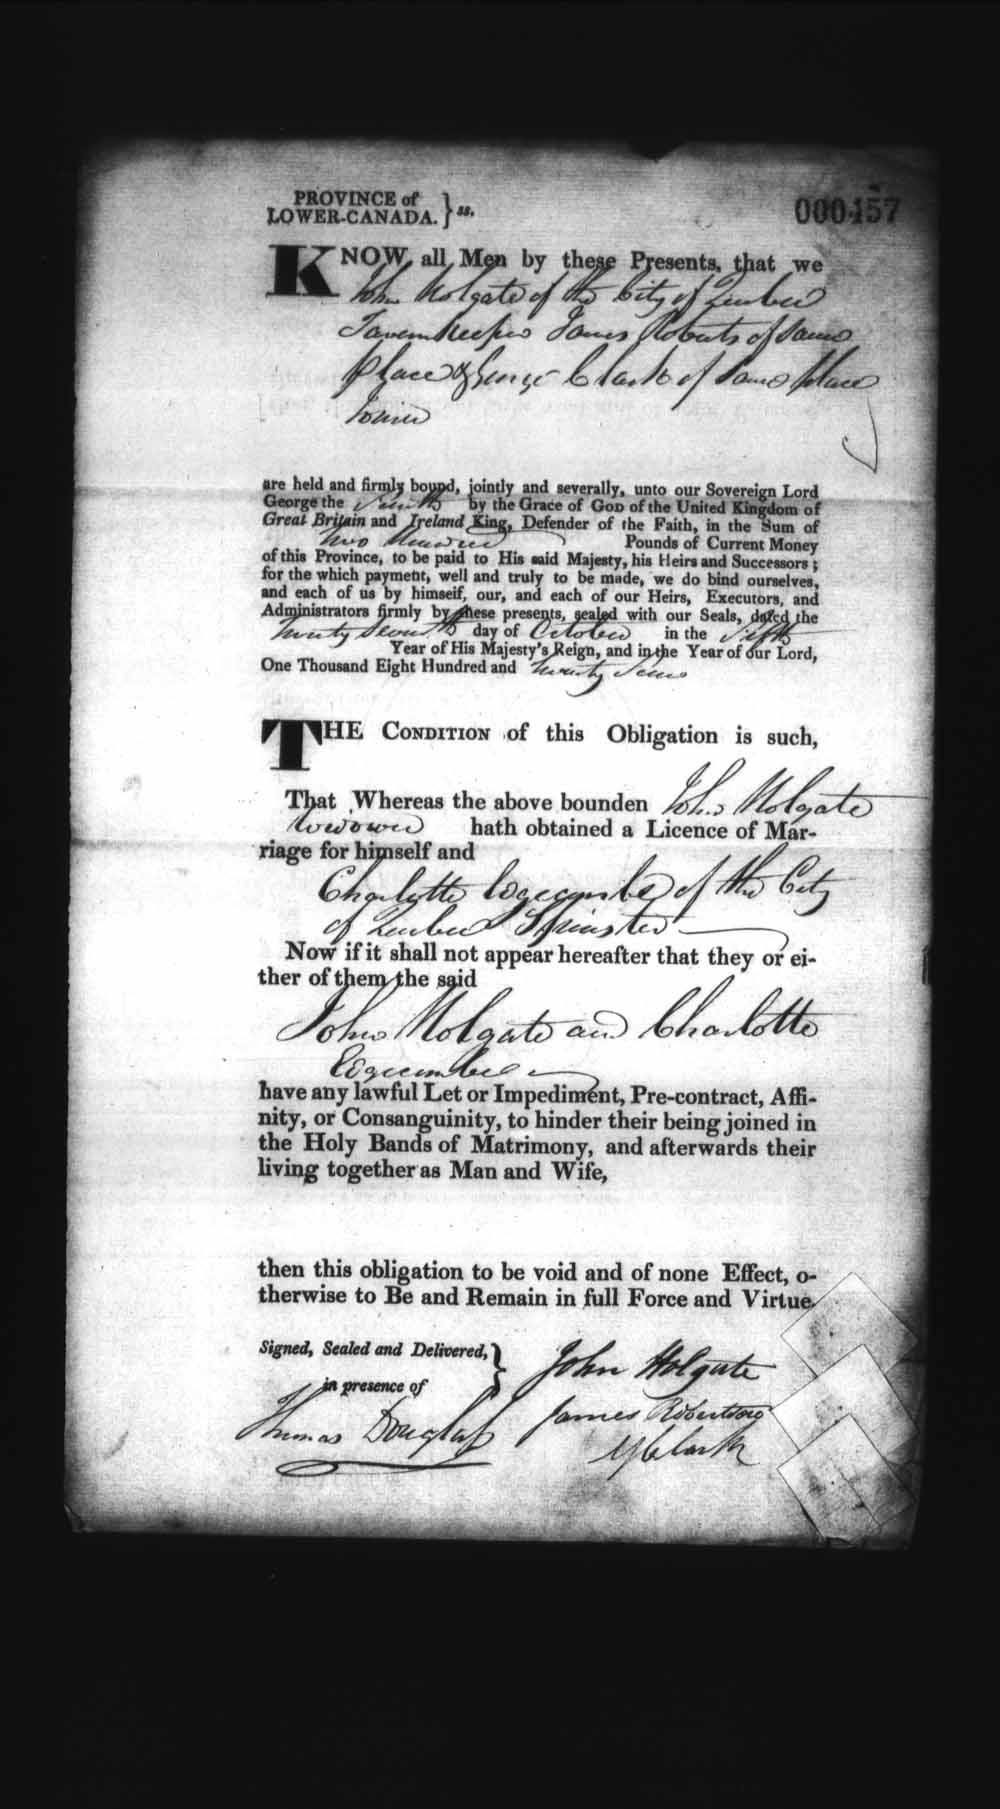 PROVINCE of
LOWER-CANADA. } ss.
000457
KNOW all Men by these Presents, that we
John Holgate of the City of Quebec
Tavern Keeper James Roberts of same
place & George Clark of same place
are held and firmly bound, jointly and severally, unto our Sovereign Lord
George the Fourth by the Grace of GOD of the United Kingdom of
Great Britain and Ireland King, Defender of the Faith, in the Sum of
Two Hundred Pounds of Current Money
of this Province, to be paid to His said Majesty, his Heirs and Successors;
for the which payment, well and truly to be made, we do bind ourselves,
and each of us by himself, our, and each of our Heirs, Executors, and
Administrators firmly by these presents, sealed with our Seals, dated the
Twenty Seventh day of October in the Fifth
Year of His Majesty's Reign, and in the Year of our Lord,
One Thousand Eight Hundred and twenty four
THE CONDITION of this Obligation is such,
That Whereas the above bounden John Holgate
Widower hath obtained a Licence of Mar-
riage for himself and
Charlotte Edgecombe of the City
of Quebec Spinster
Now if it shall not appear hereafter that they or ei-
ther of them the said
John Holgate and Charlotte
Edgecombe
have any lawful Let or Impediment, Pre-contract, Affi-
nity, or Consanguinity, to hinder their being joined in
the Holy Bands of Matrimony, and afterwards their
living together as Man and Wife,
then this obligation to be void and of none Effect, o-
therwise to Be and Remain in full Force and Virtue.
Signed, Sealed and Delivered, }
in presence of
John Holgate
Thomas Douglas
James Robertson
G Clark